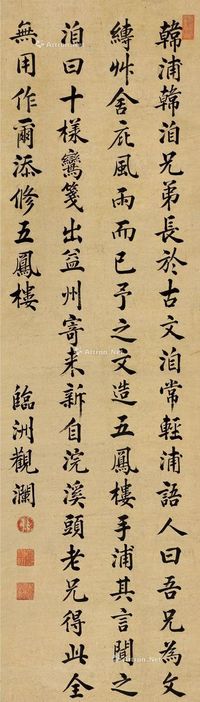 韓浦韓洎兄弟長於古文洎常輕浦語人曰吾兄為文
縛艸舍庇風雨而已予之文造五鳳樓手浦其言聞之
洎曰十樣鸞箋出益州寄来新自浣溪頭老兄得此全
無用作爾添修五鳳樓
臨洲觀瀾
Artron.Net